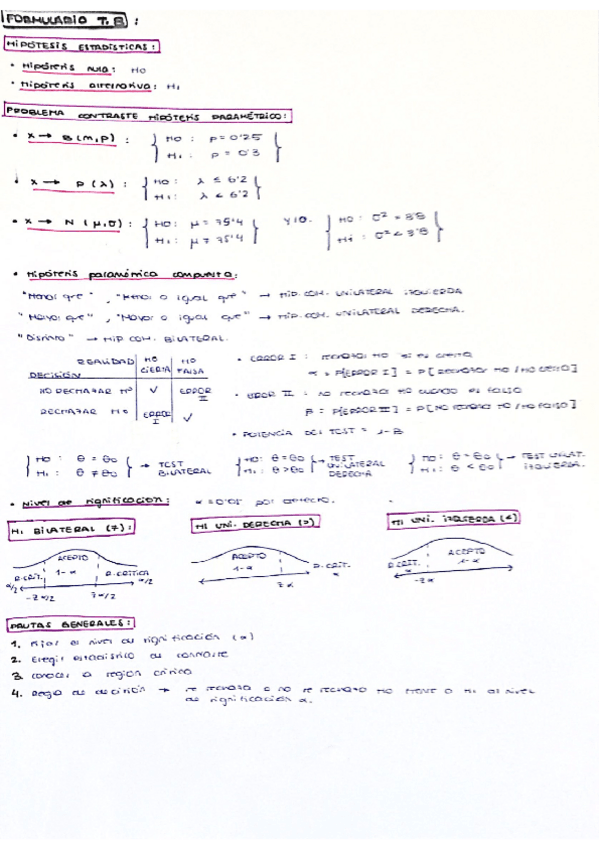 FORMULARIO T.8 :
HIPÓTESIS ESTADÍSTICAS :
• Hipótesis nula : H0
• Hipótesis alternativa : H1
PROBLEMA CONTRASTE HIPÓTESIS PARAMÉTRICO :
• X → B(m,p) : { H0 : p = 0'25
H1 : p = 0'3 }
• X → P(λ) : { H0 : λ ≤ 6'2
H1 : λ < 6'2 }
• X → N(μ,σ) : { H0 : μ = 75'4 } Y/O. { H0 : σ² = 3'8 }
{ H1 : μ ≠ 75'4 } { H1 : σ² < 3'8 }
• Hipótesis paramétrica compuesta :
"Menor que" , "Menor o igual que" → HIP. COM. UNILATERAL IZQUIERDA
"Mayor que" , "Mayor o igual que" → HIP. COM. UNILATERAL DERECHA.
"Distinto" → HIP COM. BILATERAL.
REALIDAD H0 CIERTA H0 FALSA
DECISIÓN
NO RECHAZAR H0 ✓ ERROR II
RECHAZAR H0 ERROR I ✓
• ERROR I : rechazar H0 si es cierta
α = P[ERROR I] = P[RECHAZAR H0 / H0 CIERTO]
• ERROR II : no rechazar H0 cuando es falso
β = P[ERROR II] = P[NO RECHAZO H0 / H0 FALSO]
• POTENCIA DEL TEST = 1-β
{ H0 : θ = θ0 H1 : θ ≠ θ0 } → TEST BILATERAL
{ H0 : θ = θ0 H1 : θ > θ0 } → TEST UNILATERAL DERECHA
{ H0 : θ = θ0 H1 : θ < θ0 } → TEST UNILAT. IZQUIERDA.
• Nivel de significación : α = 0'05 por defecto.
H1 BILATERAL (≠) : H1 UNI. DERECHA (>) H1 UNI. IZQUIERDA (<)
ACEPTO ACEPTO ACEPTO
R.CRIT. 1-α R.CRÍTICA 1-α R.CRIT. R.CRIT. 1-α
α/2 α/2 α α
-Z α/2 Z α/2 Z α -Z α
PAUTAS GENERALES :
1. Fijar el nivel de significación (α)
2. Elegir estadístico de contraste
3. Conocer la región crítica
4. Regla de decisión → se rechaza o no se rechaza H0 frente a H1 al nivel
de significación α.